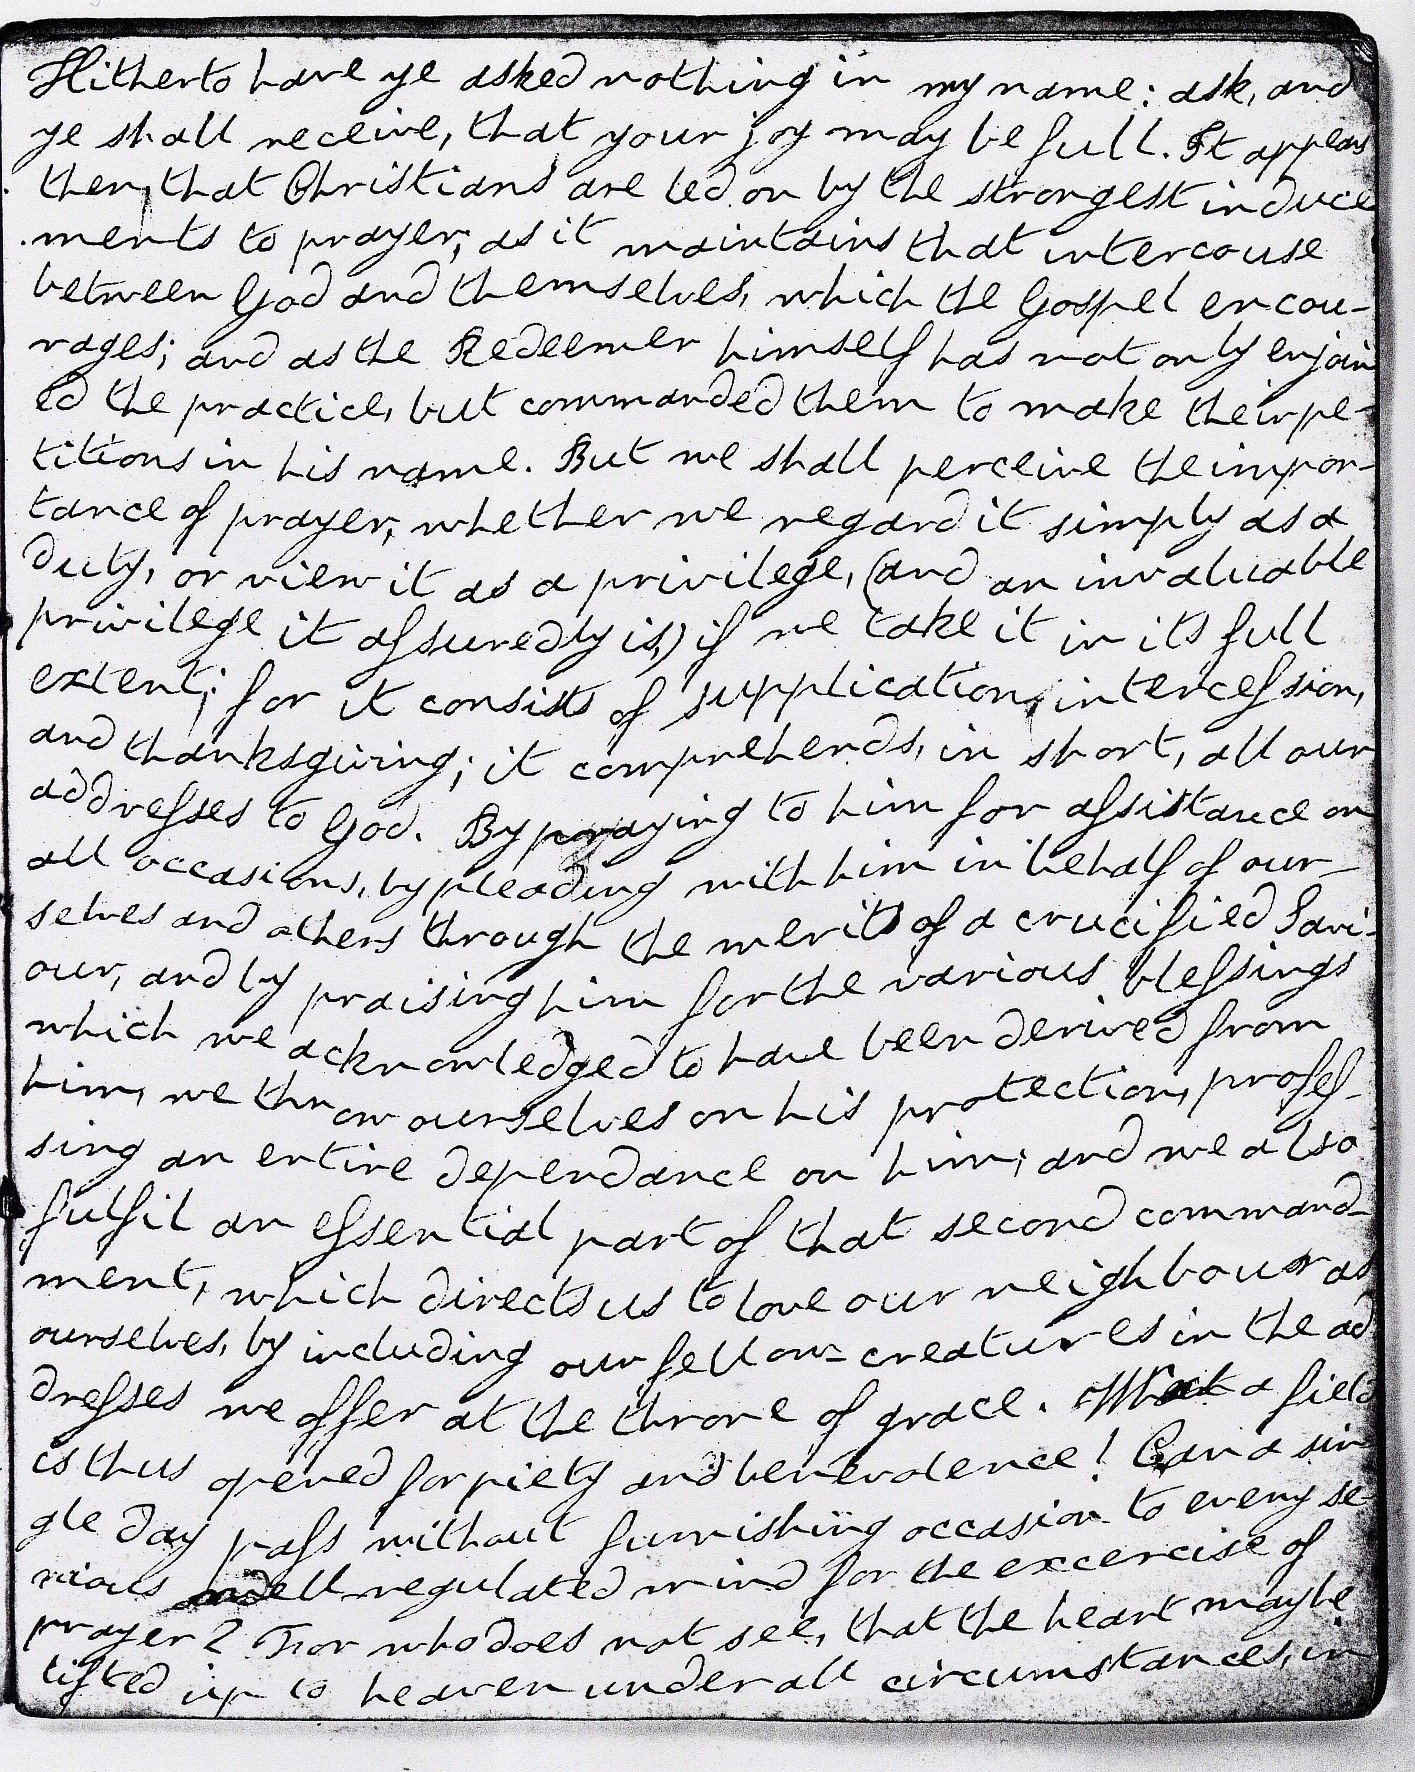 Hitherto have ye asked nothing in my name: ask, and
ye shall receive, that your joy may be full. It appears
then, that Christians are led on by the strongest induce
ments to prayer, as it maintains that intercouse
between God and themselves, which the Gospel encou-
rages; and as the Redeemer himself has not only enjoin
ed the practice, but commanded them to make their pe-
titions in his name. But we shall perceive the impor-
tance of prayer, whether we regard it simply as a
duty, or view it as a privilege, (and an invaluable
privilege it assuredly is,) if we take it in its full
extent; for it consists of supplication, intercession,
and thanksgiving; it comprehends, in short, all our
addresses to God. By praying to him for assistance on
all occasions, by pleading with him in behalf of our-
selves and others through the merits of a crucified Savi-
our, and by praising him for the various blessings
which we acknowledged to have been derived from
him, we throw ourselves on his protection, profes-
sing an entire dependance on him; and we also
fulfil an essential part of that second command-
ment, which directs us to love our neighbour as
ourselves, by including our fellow-creatures in the ad
dresses we offer at the throne of grace. What a field
is thus opened for piety and benevolence! Can a sin
gle day pass without furnishing occasion to every se-
rious well regulated mind for the excercise of
prayer? For who does not see, that the heart may be
lifted up to heaven under all circumstances, in